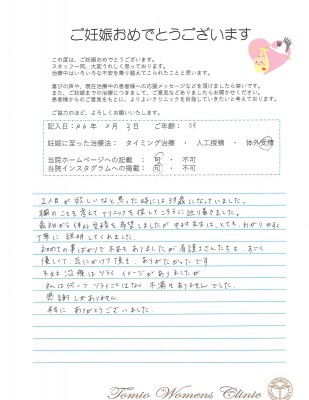 ご妊娠おめでとうございます
この度は、ご妊娠おめでとうございます。
スタッフ一同、大変うれしく思っております。
治療中はいろいろな不安を乗り越えてこられたことと思います。
喜びの声や、現在治療中の患者様への応援メッセージなどを頂けましたら幸いです。
また、ご妊娠までの治療につきまして、ご意見などありましたらお聞かせください。
患者様からのご意見をもとに、よりよいクリニックを目指していきたいと考えております。
ご協力のほど、よろしくお願いいたします。
記入日：R6年 2月 3日 ご年齢： 39
妊娠に至った治療法： タイミング治療 ・ 人工授精 ・ 体外受精
当院ホームページへの記載 ： 可 ・ 不可
当院インスタグラムへの掲載 ： 可 ・ 不可
2人目が欲しいなと思った時には38歳になっていました。
歳のことを考えてクリニックを探してこちらに辿り着きました。
最初から体外受精を希望しましたが 先生は、とてもわかりやすく
丁寧に説明してくれました。
初めての事ばかりで不安もありましたが看護さんたちも、すごく
優しくて、気にかけて頂き、ありがたかったです
不妊治療はツライイメージがありましたが
私は何一つツライことはなく不満もありませんでした。
感謝しかありません。
本当にありがとうございました。
Tomio Womens Clinic